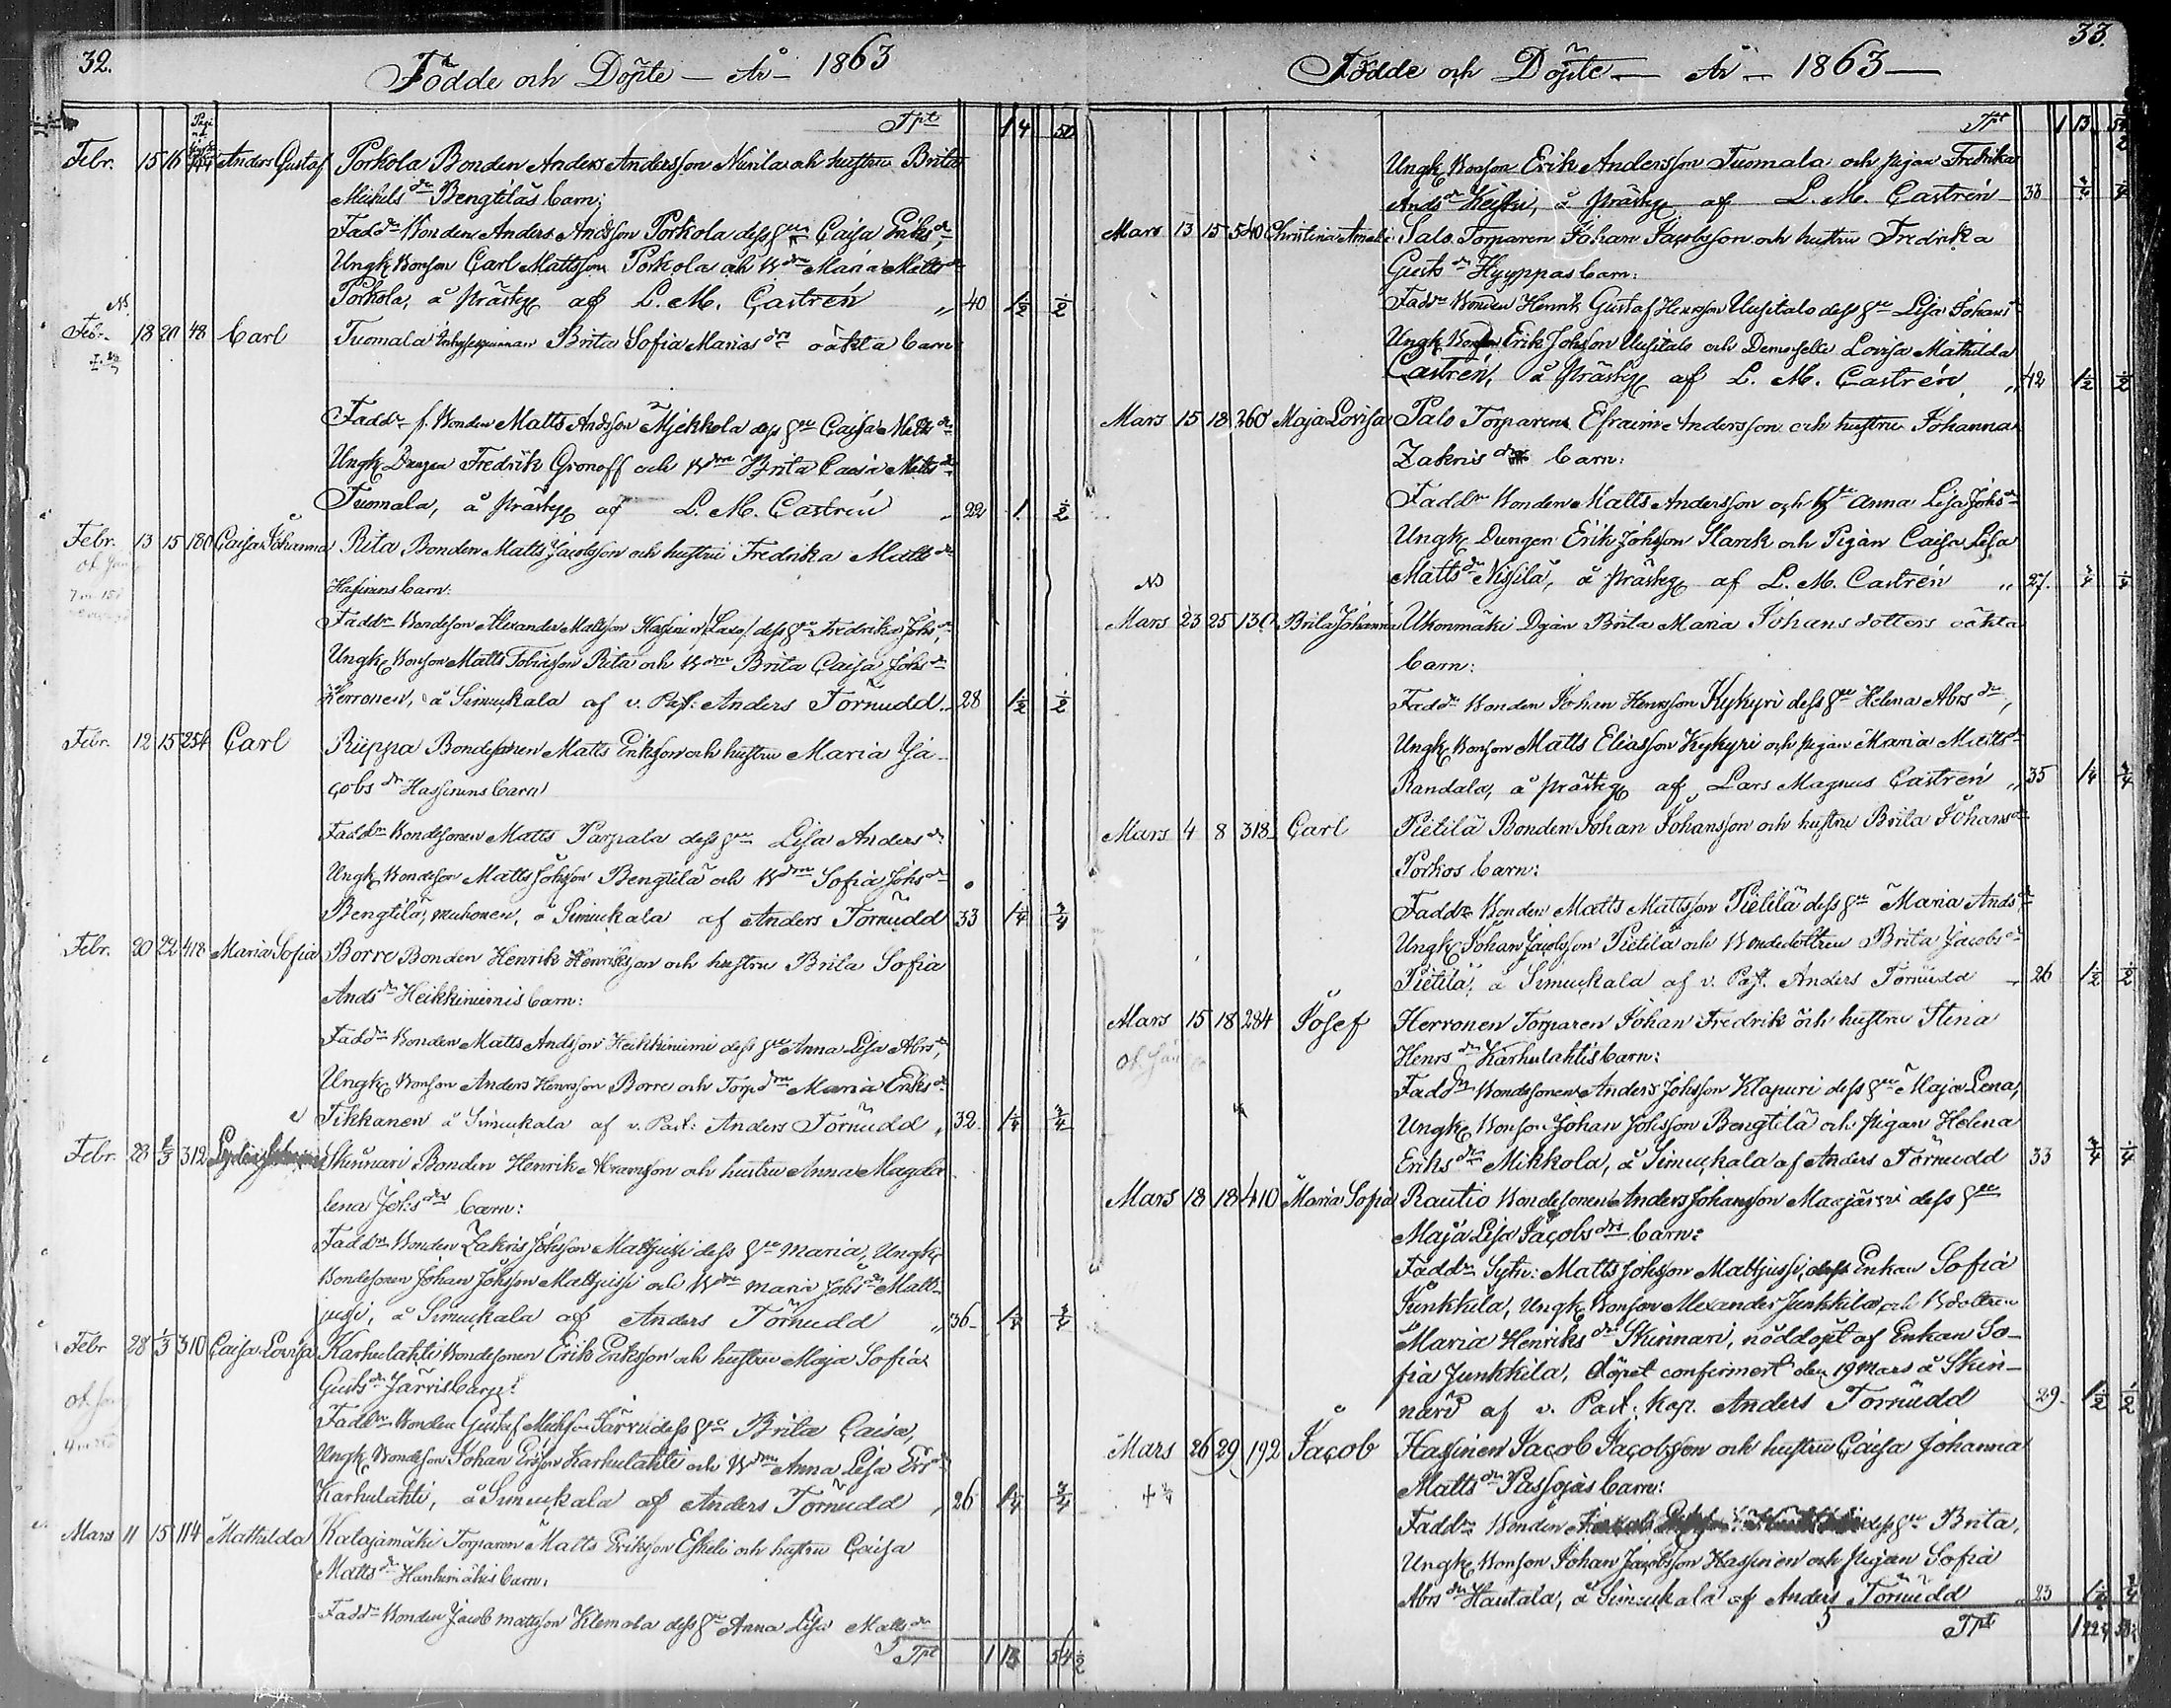 32.
Födde och Döpte — År — 1863
Tpt 14 50
Febr. 15 16 Anders Gustaf Porkola Bonden Anders Andersson Nurila och hustru Brita
Michels dr Bengtiläs barn;
Fadd. Bonden Anders Andsson Porkola dess hu Caisa Eriks dr,
Ungk. Bonson Carl Mattsson Porkola och Bdn Maria Matts dr
Porkola, å Prästg af L. M. Castrén „ 40 1½ ½
Febr. 18 20 48 Carl Tuomala Brita Sofia Marias dr oäkta barn
Fadd. f. Bonden Matts Andsson Mjekkola dess hu Caisa Matts dr
Ungk. Drengen Fredrik Gronoff och Bdn Brita Caisa Matts dr
Tuomala, å Prästg af L. M. Castrén „ 22 1 ½
Febr. 13 15 180 Caisa Johanna Rita Bonden Matts Jacobsson och hustru Fredrika Matts dr
Hassinens barn:
Fadd. Bondeson Alexander Mattsson Hassinen /Laxo/ dess hu Fredrika Johs dr
Ungk. Bonson Matts Tobiasson Rita och Bdn Brita Caisa Johs dr
Herronen, å Simuckala af v. Past: Anders Törnudd 28 1½ ½
Febr. 12 15 254 Carl Riippa Bondesonen Matts Eriksson och hustru Maria Ja-
cobs dr Hassinens barn
Fadd. Bondesonen Matts Parpala dess hu Lisa Anders dr
Ungk. Bondeson Matts Johsson Bengtilä och Bdn Sofia Johs dr
Bengtilä, å Simuckala af Anders Törnudd 33 1¼ ¾
Febr. 20 22 418 Maria Sofia Borre Bonden Henrik Henriksson och hustru Brita Sofia
Ands dr Heikkiniemis barn:
Fadd. Bonden Matts Andsson Heikkiniemi dess hu Anna Lisa Abrs dr,
Ungk. Bonson Anders Henrsson Borre och Torp dn Maria Eriks dr
Tikkanen å Simuckala af v. Past: Anders Törnudd „ 32 1¼ ¾
Febr. 28 1/3 312 Skinnari Bonden Henrik Abramsson och hustru Anna Magda
lena Johs drs barn:
Fadd. Bonden Zakris Johsson Mattjussi dess hu Maria, Ungk.
Bondesonen Johan Johsson Mattjussi och Bdn Maria Johs dr Matt-
jussi, å Simuckala af Anders Törnudd „ 36 1¼ ¾
Febr 28 1/3 310 Caisa Lovisa Karhulahti Bondesonen Erik Eriksson och hustru Maja Sofia
Gusts dr Järvis barn:
Fadd. Bonden Gustaf Michsson Järvi dess hu Brita Caisa,
Ungk. Bondeson Johan Ersson Karhulahti och Bdn Anna Lisa Ers dr
Karhulahti, å Simuckala af Anders Törnudd „ 26 1¼ ¾
Mars 11 15 114 Mathilda Katajamäki Torparen Matts Eriksson Eskeli och hustru Caisa
Matts dr Hanhimäkis barn:
Fadd. Bonden Jacob Mattsson Klemola dess hu Anna Lisa Matts dr
Tpt 1 13 54½
33.
Födde och Döpte — År — 1863 —
Tpt 1 13 54½
Ungk. Bonson Erik Andersson Tuomala och pigan Fredrika
Ands dr Keski, å Prästg af L. M. Castrén 33 ¾ ¼
Mars 13 15 540 Christina Amalia Salo Torparen Johan Jacobsson och hustru Fredrika
Gusts dr Hyyppas barn:
Fadd. Bonden Henrik Gustaf Henrsson Uusitalo dess hu Lisa Johans dr
Ungk. Bonson Erik Johsson Uusitalo och Demoiselle Lovisa Mathilda
Castrén, å Prästg af L. M. Castrén „ 42 1½ ½
Mars 15 18 260 Maja Lovisa Palo Torparens Efraim Andersson och hustru Johanna
Zakris drs barn:
Fadd. Bonden Matts Andersson och hu Anna Lisa Johs dr
Ungk. Drengen Erik Johsson Slarck och Pigan Caisa Lisa
Matts dr Nissilä, å Prästg af L. M. Castrén „ 27. ¾ ¼
Mars 23 25 130 Brita Johanna Ukonmäki Dgan Brita Maria Johans dotters oäkta
barn:
Fadd. Bonden Johan Henrsson Kykyri dess hu Helena Abrs dr,
Ungk. Bonson Matts Eliasson Kykyri och pigan Maria Matts dr
Randala, å Prästg af Lars Magnus Castrén „ 35 1¼ ¾
Mars 4 8 318 Carl Pietilä Bonden Johan Johansson och hustru Brita Johans dr
Porkos barn:
Fadd. Bonden Matts Mattsson Pietilä dess hu Maria Ands dr
Ungk. Johan Jacobsson Pietilä och Bondedottren Brita Jacobs dr
Pietilä, å Simuckala af v. Past. Anders Törnudd 26 1½ ½
Mars 15 18 284 Josef Herronen Torparen Johan Fredrik och hustru Stina
Henrs dr Karhulahtis barn:
Fadd. Bondesonen Anders Johsson Klapuri dess hu Maja Lena,
Ungk. Bonson Johan Johsson Bengtilä och pigan Helena
Eriks dr Mikkola, å Simuckala af Anders Törnudd 33 ¾ ¼
Mars 18 18 410 Maria Sofia Rautio Bondesonen Anders Johansson Maajärvi dess hu
Maja Lisa Jacobs drs barn:
Fadd. Sytn: Matts Johsson Mattjussi, Enkan Sofia
Junkkila, Ungk. Bonson Alexander Junkkila och Bdottren
Maria Henriks dr Skinnari, nöddöpt af Enkan So-
fia Junkkila, döpet confirmert den 19 Mars å Skin-
nari af v. Past: Kap. Anders Törnudd 29 1½ ½
Mars 26 29 192 Jacob Hassinen Jacob Jacobsson och hustru Caisa Johanna
Matts dr Passojas barn:
Fadd. Bonden dess hu Brita,
Ungk. Bonson Johan Jacobsson Hassinen och pigan Sofia
Abrs dr Hautala, å Simuckala af Anders Törnudd 23
Tpt